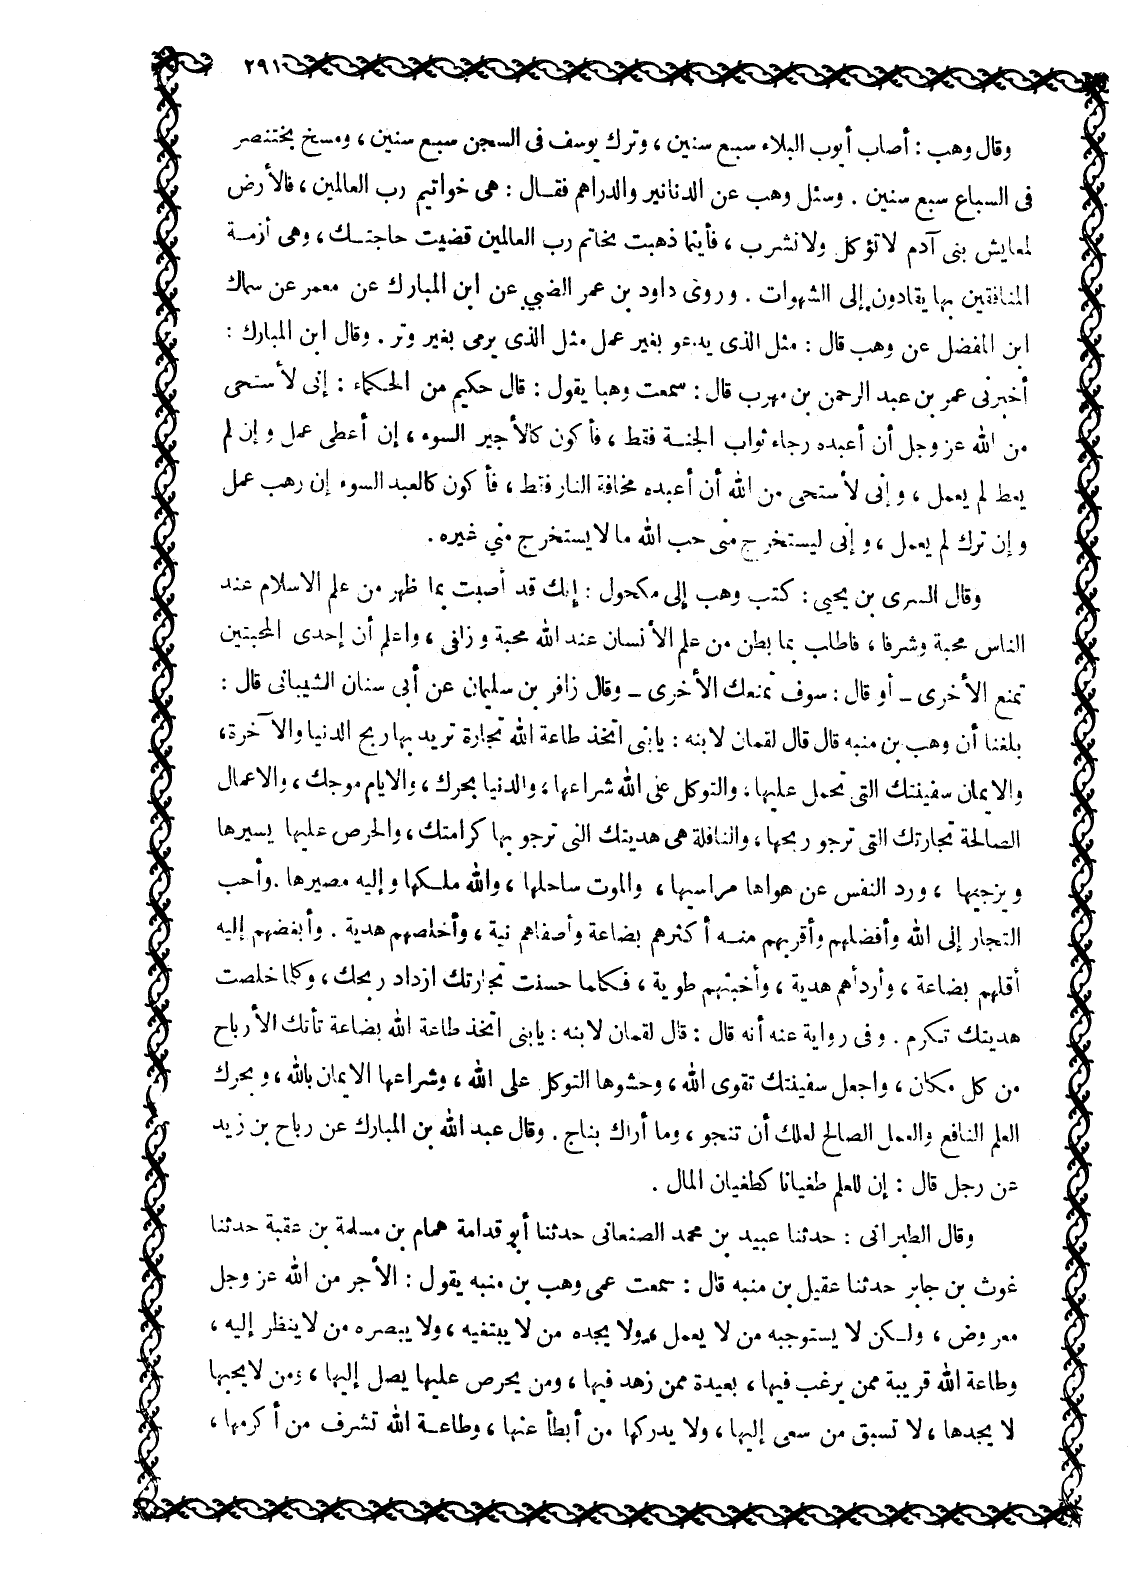 ٢٩١
وقال وهب : أصاب أيوب البلاء سبع سنين ، وترك يوسف فى السجن سبع سنين ، ومسخ بختنصر
فى السباع سبع سنين . وسئل وهب عن الدنانير والدراهم فقال : هى خواتيم رب العالمين ، فالأرض
لمعايش بنى آدم لا تؤكل ولا تشرب ، فأينما ذهبت بخاتم رب العالمين قضيت حاجتك ، وهى أزمة
المنافقين بها يقادون إلى الشهوات . وروى داود بن عمر الضبي عن ابن المبارك عن معمر عن سماك
ابن المفضل عن وهب قال : مثل الذى يدعو بغير عمل مثل الذى يرمى بغير وتر . وقال ابن المبارك :
أخبرنى عمر بن عبد الرحمن بن مهرب قال : سمعت وهبا يقول : قال حكيم من الحكماء : إنى لأستحى
من الله عز وجل أن أعبده رجاء ثواب الجنة فقط ، فأكون كالأجير السوء ، إن أعطى عمل وإن لم
يعط لم يعمل ، وإنى لأستحى من الله أن أعبده مخافة النار فقط ، فأكون كالعبد السوء إن رهب عمل
وإن ترك لم يعمل ، وإنى ليستخرج منى حب الله ما لا يستخرج مني غيره .
وقال السرى بن يحيى : كتب وهب إلى مكحول : إنك قد أصبت بما ظهر من علم الاسلام عند
الناس محبة وشرفا ، فاطلب بما بطن من علم الأنسان عند الله محبة وزلفى ، واعلم أن إحدى المحبتين
تمنع الأخرى ـ أو قال : سوف تمنعك الأخرى ـ وقال زافر بن سليمان عن أبى سنان الشيبانى قال :
بلغنا أن وهب بن منبه قال قال لقمان لابنه : يابنى اتخذ طاعة الله تجارة تريد بها ربح الدنيا والآخرة ،
والايمان سفينتك التى تحمل عليها ، والتوكل على الله شراعها ، والدنيا بحرك ، والايام موجك ، والاعمال
الصالحة تجارتك التى ترجو ربحها ، والنافلة هى هديتك التى ترجو بها كرامتك ، والحرص عليها يسيرها
ويزجيها ، ورد النفس عن هواها مراسيها ، والموت ساحلها ، والله ملكها وإليه مصيرها . وأحب
التجار إلى الله وأفضلهم وأقربهم منه أكثرهم بضاعة وأصفاهم نية ، وأخلصهم هدية . وأبغضهم إليه
أقلهم بضاعة ، وأردأهم هدية ، وأخبثهم طوية ، فكلما حسنت تجارتك ازداد ربحك ، وكلما خلصت
هديتك تكرم . وفى رواية عنه أنه قال : قال لقمان لابنه : يابنى اتخذ طاعة الله بضاعة تأتك الأرباح
من كل مكان ، واجعل سفينتك تقوى الله ، وحشوها التوكل على الله ، وشراعها الايمان بالله ، وبحرك
العلم النافع والعمل الصالح لعلك أن تنجو ، وما أراك بناج . وقال عبد الله بن المبارك عن رباح بن زيد
عن رجل قال : إن للعلم طغيانا كطغيان المال .
وقال الطبرانى : حدثنا عبيد بن محمد الصنعانى حدثنا أبو قدامة همام بن مسلمة بن عقبة حدثنا
غوث بن جابر حدثنا عقيل بن منبه قال : سمعت عمى وهب بن منبه يقول : الأجر من الله عز وجل
معروض ، ولكن لا يستوجبه من لا يعمل ، ولا يجده من لا يبتغيه ، ولا يبصره من لا ينظر إليه ،
وطاعة الله قريبة ممن يرغب فيها ، بعيدة ممن زهد فيها ، ومن يحرص عليها يصل إليها ، ومن لا يحبها
لا يجدها ، لا تسبق من سعى إليها ، ولا يدركها من أبطأ عنها ، وطاعة الله تشرف من أكرمها ،